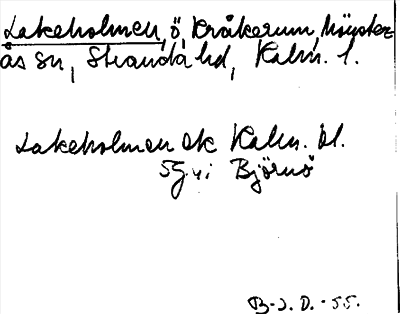 Lakeholmen, ö, Kråkerum, Mönster-
ås sn, Stranda hd, Kalm. l.
Lakeholmen ek Kalm. bl.
5g vi Björnö
B-J. D. -55.